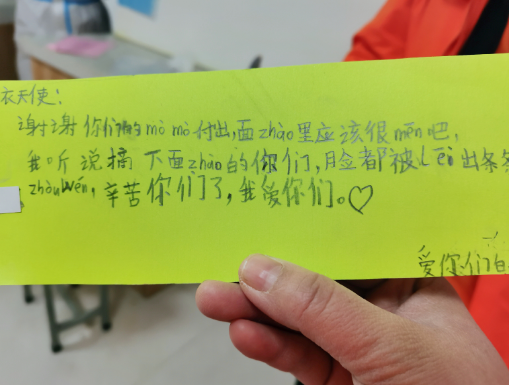 衣天使:
谢谢你们的mò mò付出,面zhào里应该很mēn吧,
我听说摘下面zhào的你们,脸都被lēi出条条
zhòuwén,辛苦你们了,我爱你们。♡
爱你们白